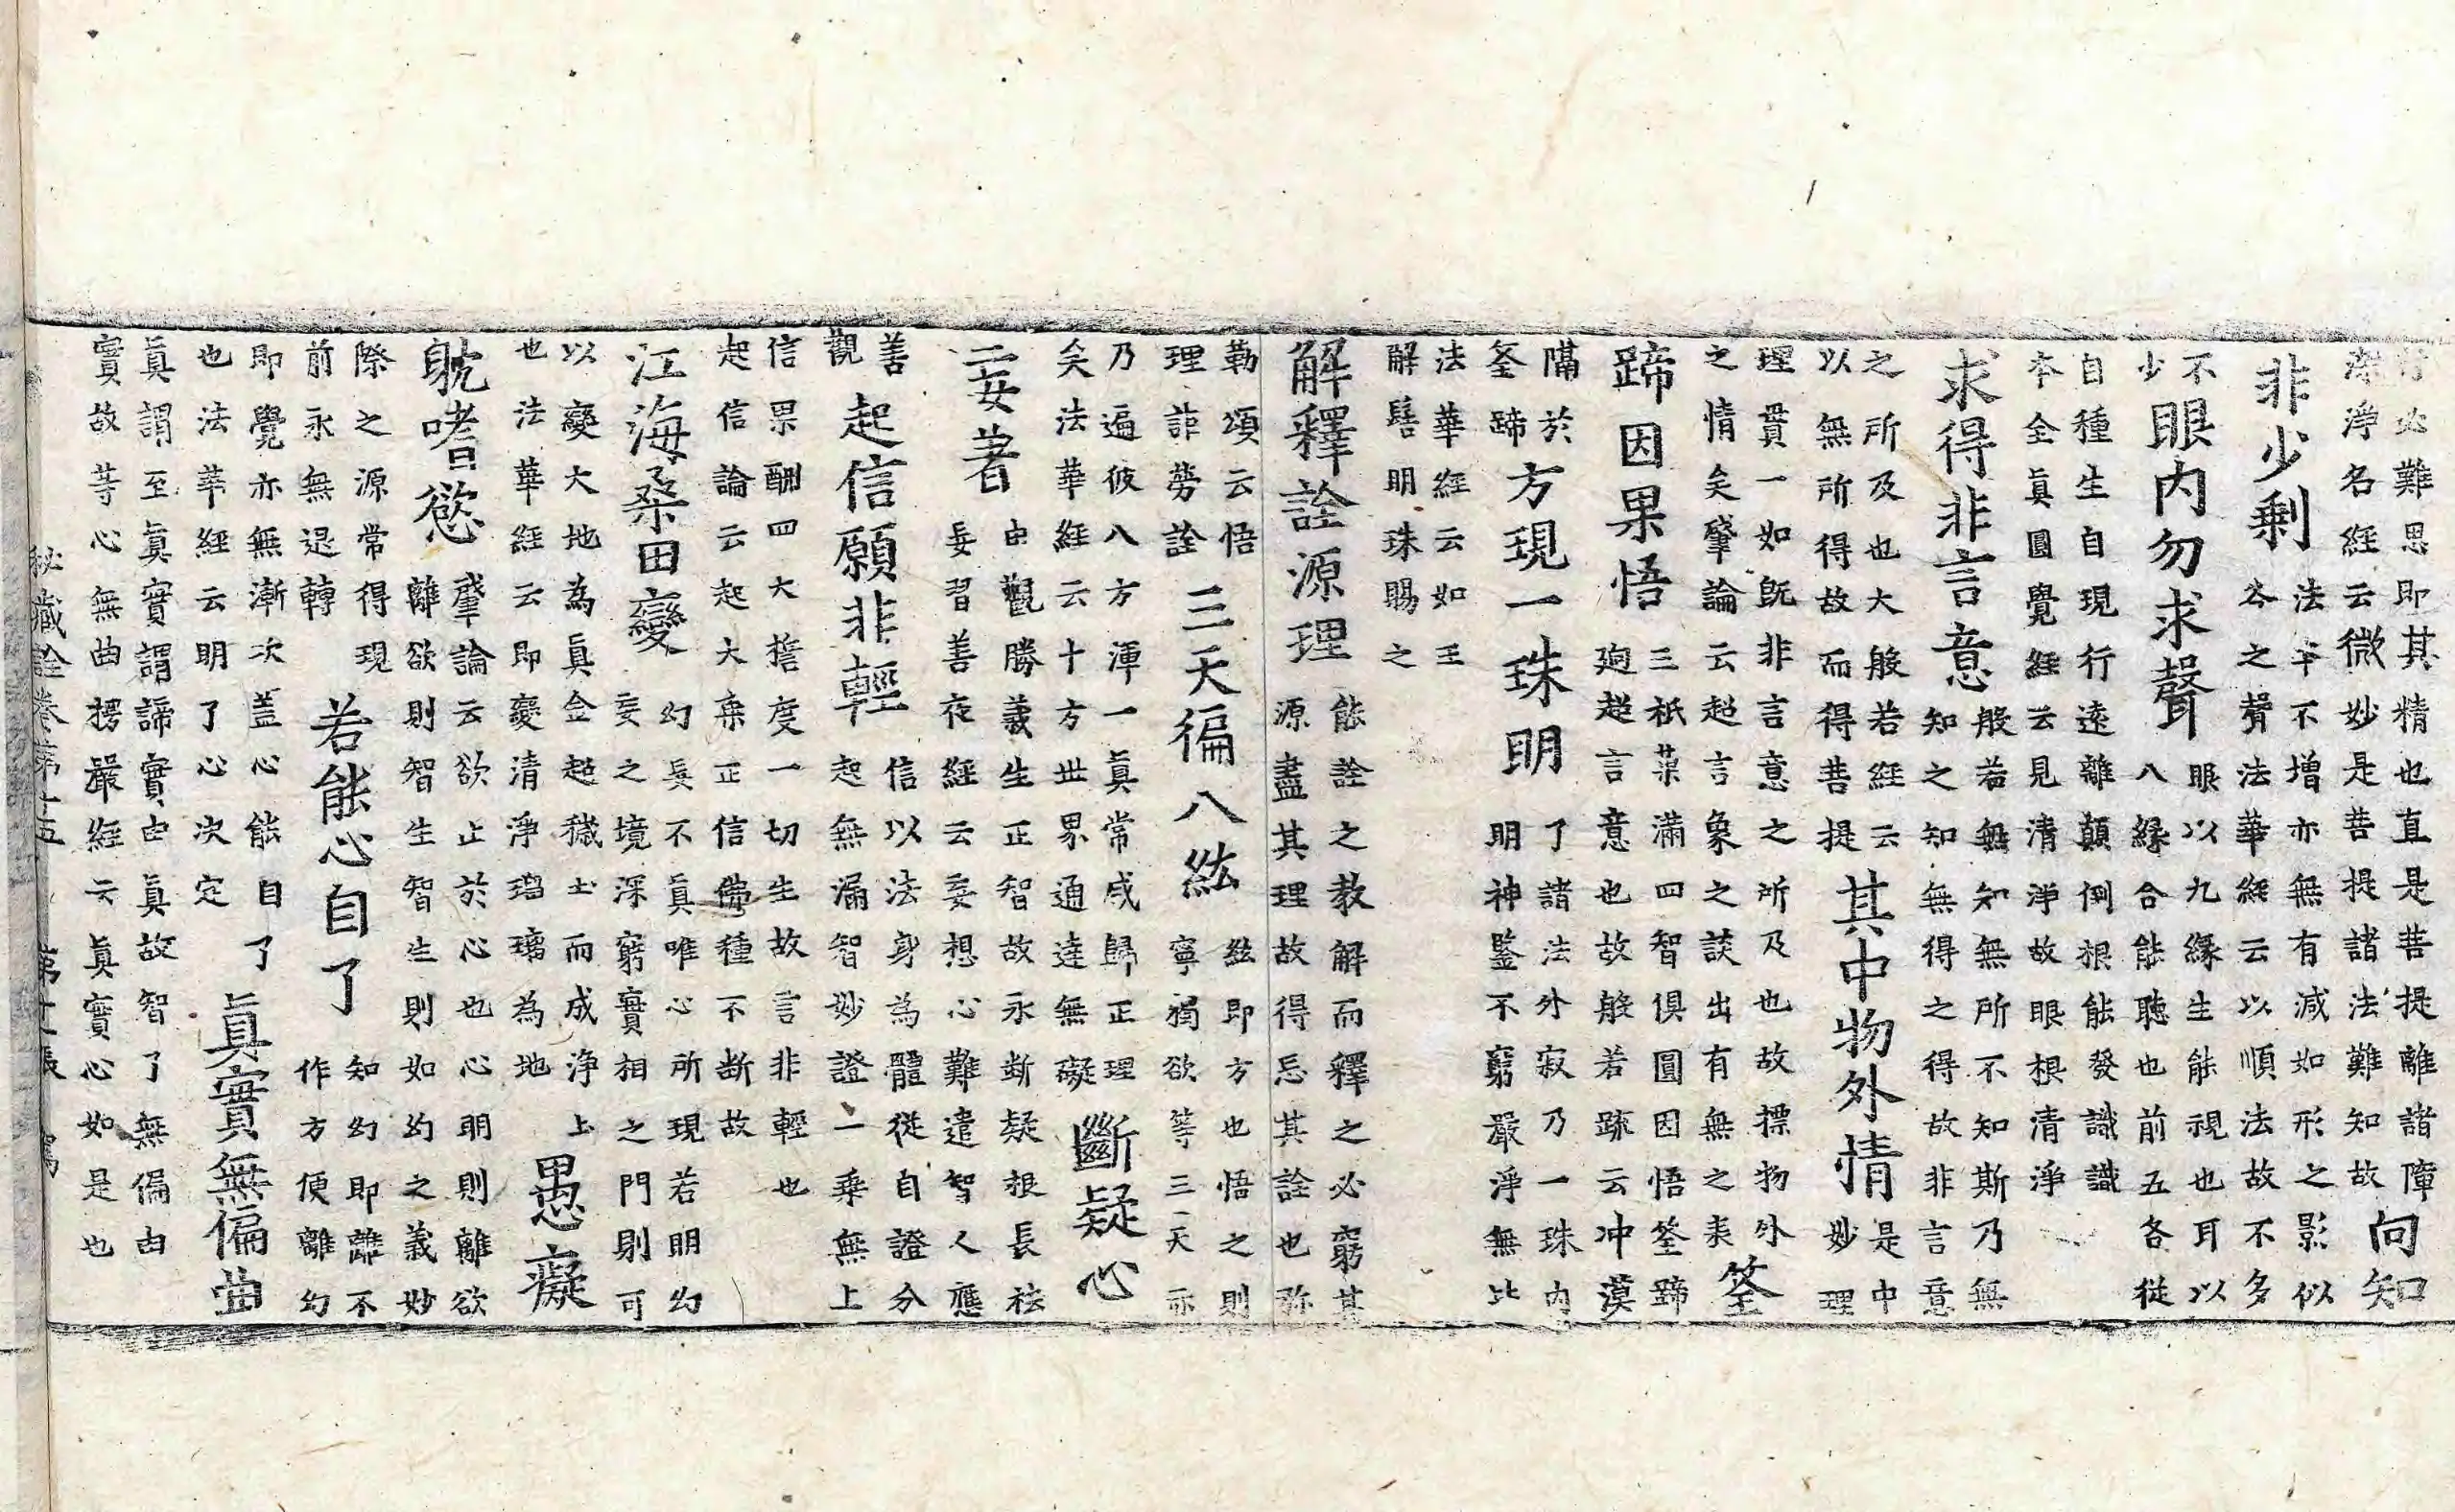 行必難思即其精也直是菩提離諸障
深淨名經云微妙是菩提諸法難知故
向知
非少剩
法本不增亦無有減如形之影似
谷之聲法華經云以順法故不多
不眼以九緣生能視也耳以
少八緣合能聽也前五各從
眼內勿求聲
自種生自現行遠離顛倒根能發識識
本全眞圓覺經云見清淨故眼根清淨
求得非言意
般若無知無所不知斯乃無
知之知無得之得故非言意
之所及也大般若經云
以無所得故而得菩提
其中物外情
是中
妙理
理貫一如既非言意之所及也故摽物外
之情矣肇論云超言象之談出有無之表
筌
蹄因果悟
三祇菓滿四智俱圓因悟筌蹄
逈超言意也故般若䟽云冲漠
隔於
筌蹄
方現一珠明
了諸法外寂乃一珠內
明神鑒不窮嚴淨無比
法華經云如王
解髻明珠賜之
解釋詮源理
能詮之教解而釋之必窮其
源盡其理故得忘其詮也弥
勒頌云悟
理詎勞詮
三天徧八紘
紘即方也悟之則
寧獨欲等三天亦
乃遍彼八方渾一眞常咸歸正理
矣法華經云十方世界通達無礙
斷疑心
二妄著
由觀勝義生正智故永斷疑根長祛
妄習善夜經云妄想心難遣智人應
善
觀
起信願非輕
信以法身爲體從自證分
起無漏智妙證一乘無上
信果酬四大擔度一切生故言非輕也
起信論云起大乘正信佛種不断故
江海桑田變
幻妄不真唯心所現若明幻
妄之境深窮實相之門則可
以變大地為眞金超穢土而成浄土
也法華經云即變清淨瑠璃為地
愚癡
躭嗜慾
肇論云欲止於心也心明則離欲
離欲則智生智生則如幻之義妙
際之源常得現
前永無退轉
若能心自了
知幻即離不
作方便離幻
即覺亦無漸次蓋心能自了
也法華經云明了心決定
眞實無偏曲
眞謂至眞實謂諦實由眞故智了無偏由
實故等心無曲楞嚴經云眞實心如是也
秘藏詮卷第十五 第十張